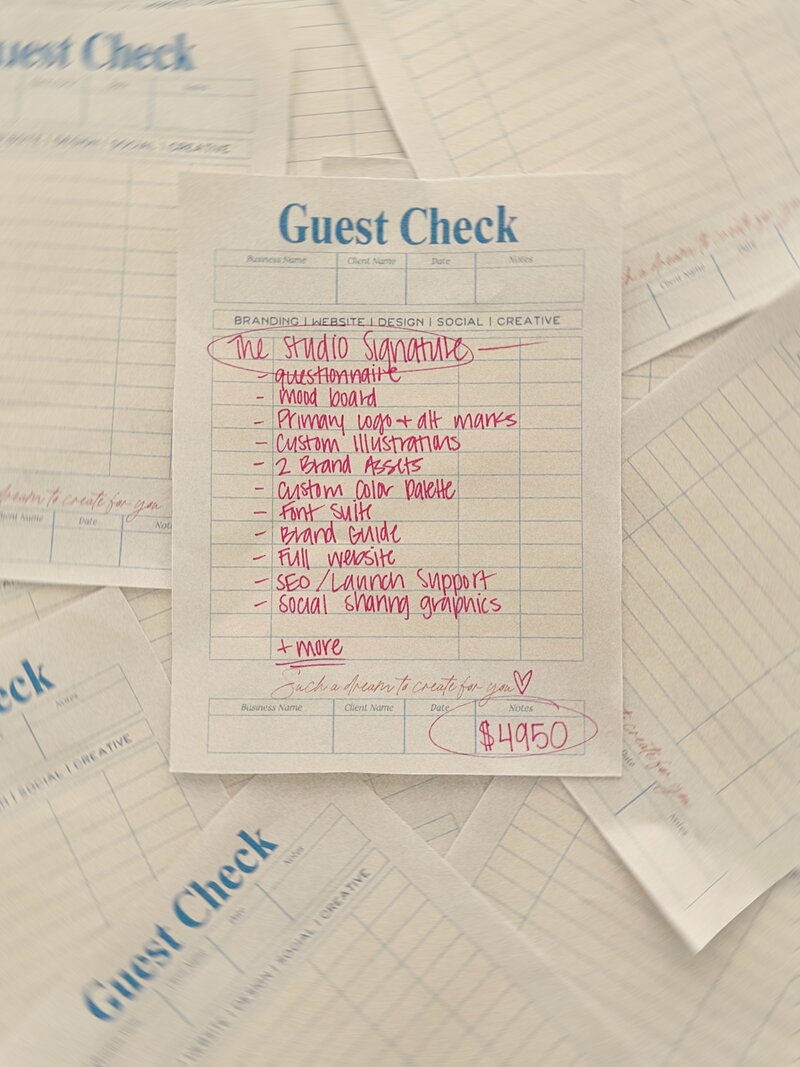 Guest Check
Business Name Client Name Date Notes
BRANDING | WEBSITE | DESIGN | SOCIAL | CREATIVE
The Studio Signature
- questionnaire
- mood board
- Primary Logo + alt marks
- Custom Illustrations
- 2 Brand Assets
- Custom Color Palette
- Font Suite
- Brand Guide
- Full website
- SEO / Launch Support
- Social sharing graphics
+ more
Such a dream to create for you
Business Name Client Name Date Notes
$4950
uest Check
DESIGN | SOCIAL | CREATIVE
dream to create for you
Client Name Date
Client Name Date
eck
Notes
| SOCIAL | CREATIVE
Guest Check
Date Notes
WEBSITE | DESIGN | SOCIAL | CREATIVE
create for you
Date Notes